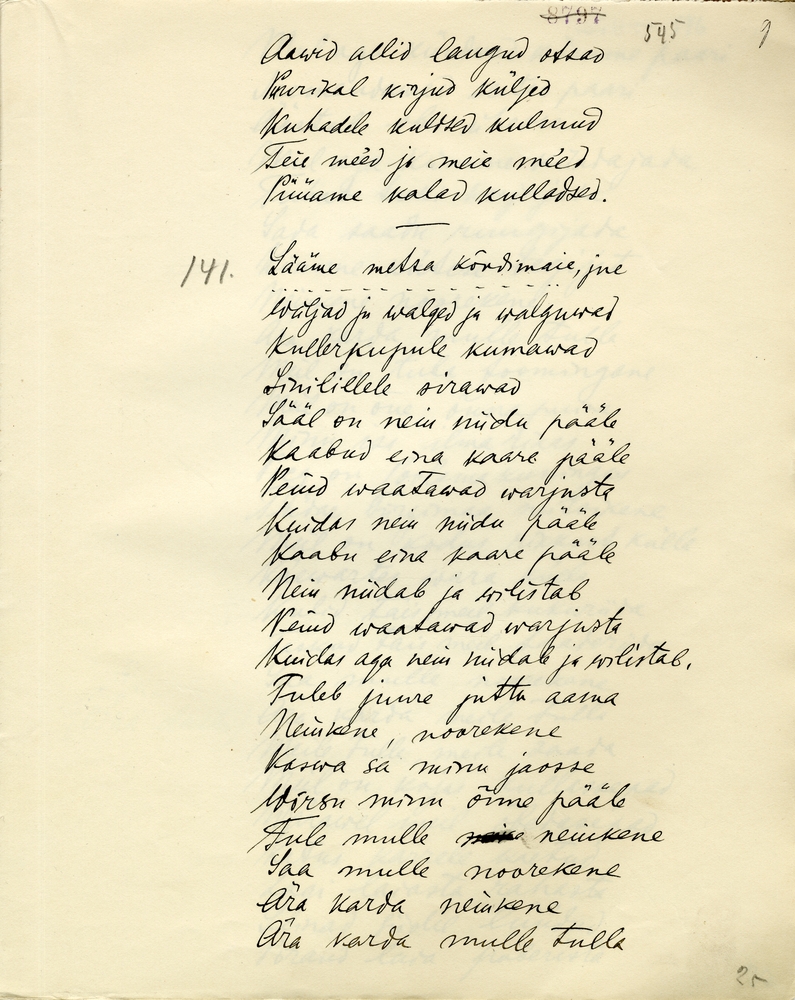 8797
545
Aawid allid laugud otsad
Purikal kirjud küljed
Kuhadele kuldsed kulmud
Teie mééd ja meie mééd
Püüame kalad kulladsed.
141. Lääme metsa kõndimaie, jne
Wäljad ju walged ja walguwad
Kullerkupule kumawad
Sinilillele sirawad
Sääl on nein niidu pääle
Kaabud eina kaare pääle
Peiud waatawad warjusta
Kuidas nein niidu pääle
Kaabu eina kaare pääle
Nein niidab ja wilistab
Peiud waatawad warjusta
Kuidas aga nein niidab ja wilistab.
Tuleb juure juttu aama
Neiukene, noorekene
Kaswa sa minu jaosse
Wõrsu minu õnne pääle
Tule mulle neiukene
Saa mulle noorekene
Ära karda neiukene
Ära karda mulle tulla